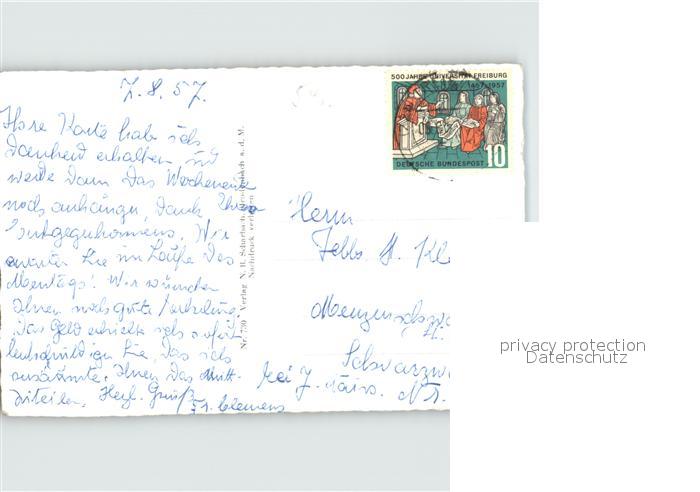 7.8.57.
Ihre Karte hab ich
dankend erhalten und
werde dann das Wochenende
noch anhängen, dank Ihres
Entgegenkommens. Wir
erwarten Sie im Laufe des
Montags! Wir wünschen
Ihnen noch gute Erholung.
Das Geld erhielt ich sofort
entschuldigen Sie, das ich
versäumte, Ihnen das mit-
zuteilen. Herzl. Grüße
Fr. Clemens
500 JAHRE UNIVERSITÄT FREIBURG
1457-1957
DEUTSCHE BUNDESPOST 10
Nr. 730 Verlag N. B. a. d. M.
Nachdruck verboten
Herrn
Menzenschw
Schwarzw
bei J. Nr.
privacy protection
Datenschutz